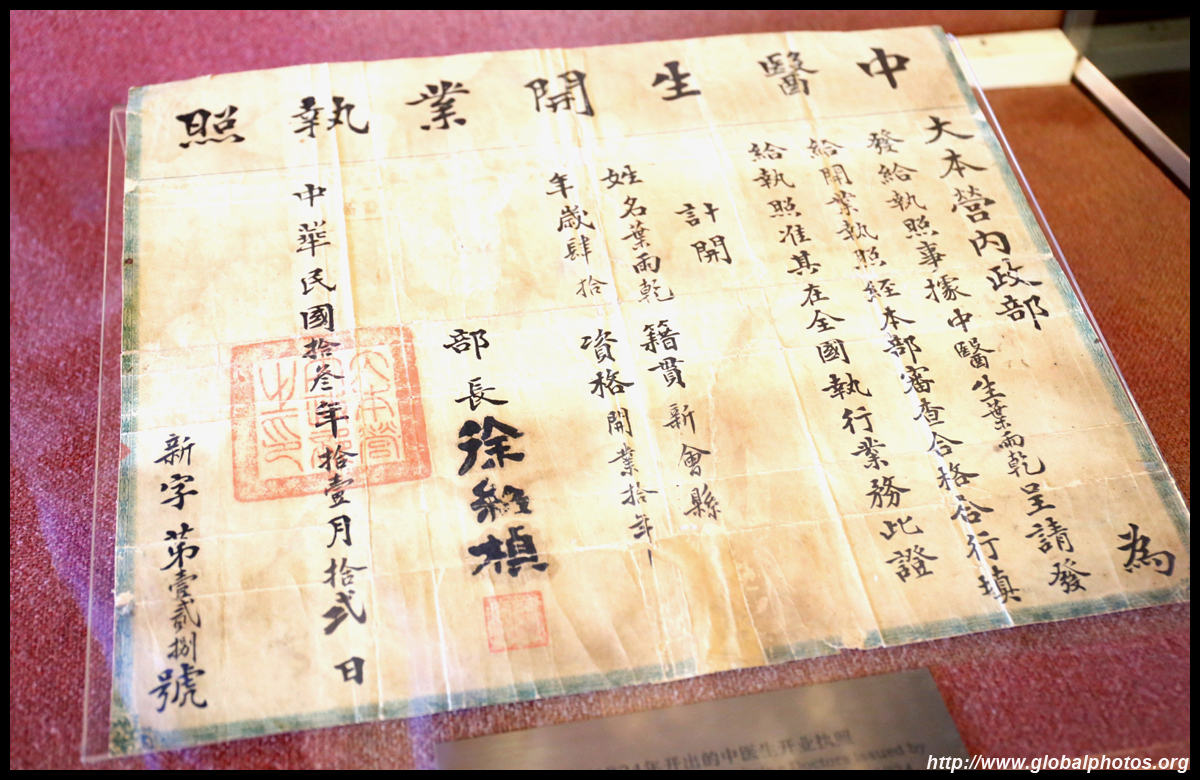 中醫生開業執照
大本營內政部 為
發給執照事據中醫生葉雨乾呈請發
給開業執照經本部審查合格合行填
給執照准其在全國執行業務此證
計開
姓名葉雨乾 籍貫 新會縣
年歲肆拾 資格 開業拾年
部長徐紹楨
中華民國拾叁年拾壹月拾弍日
新字第壹貳捌號
年开出的中医生开业执照
Doctors issued by
http://www.globalphotos.org